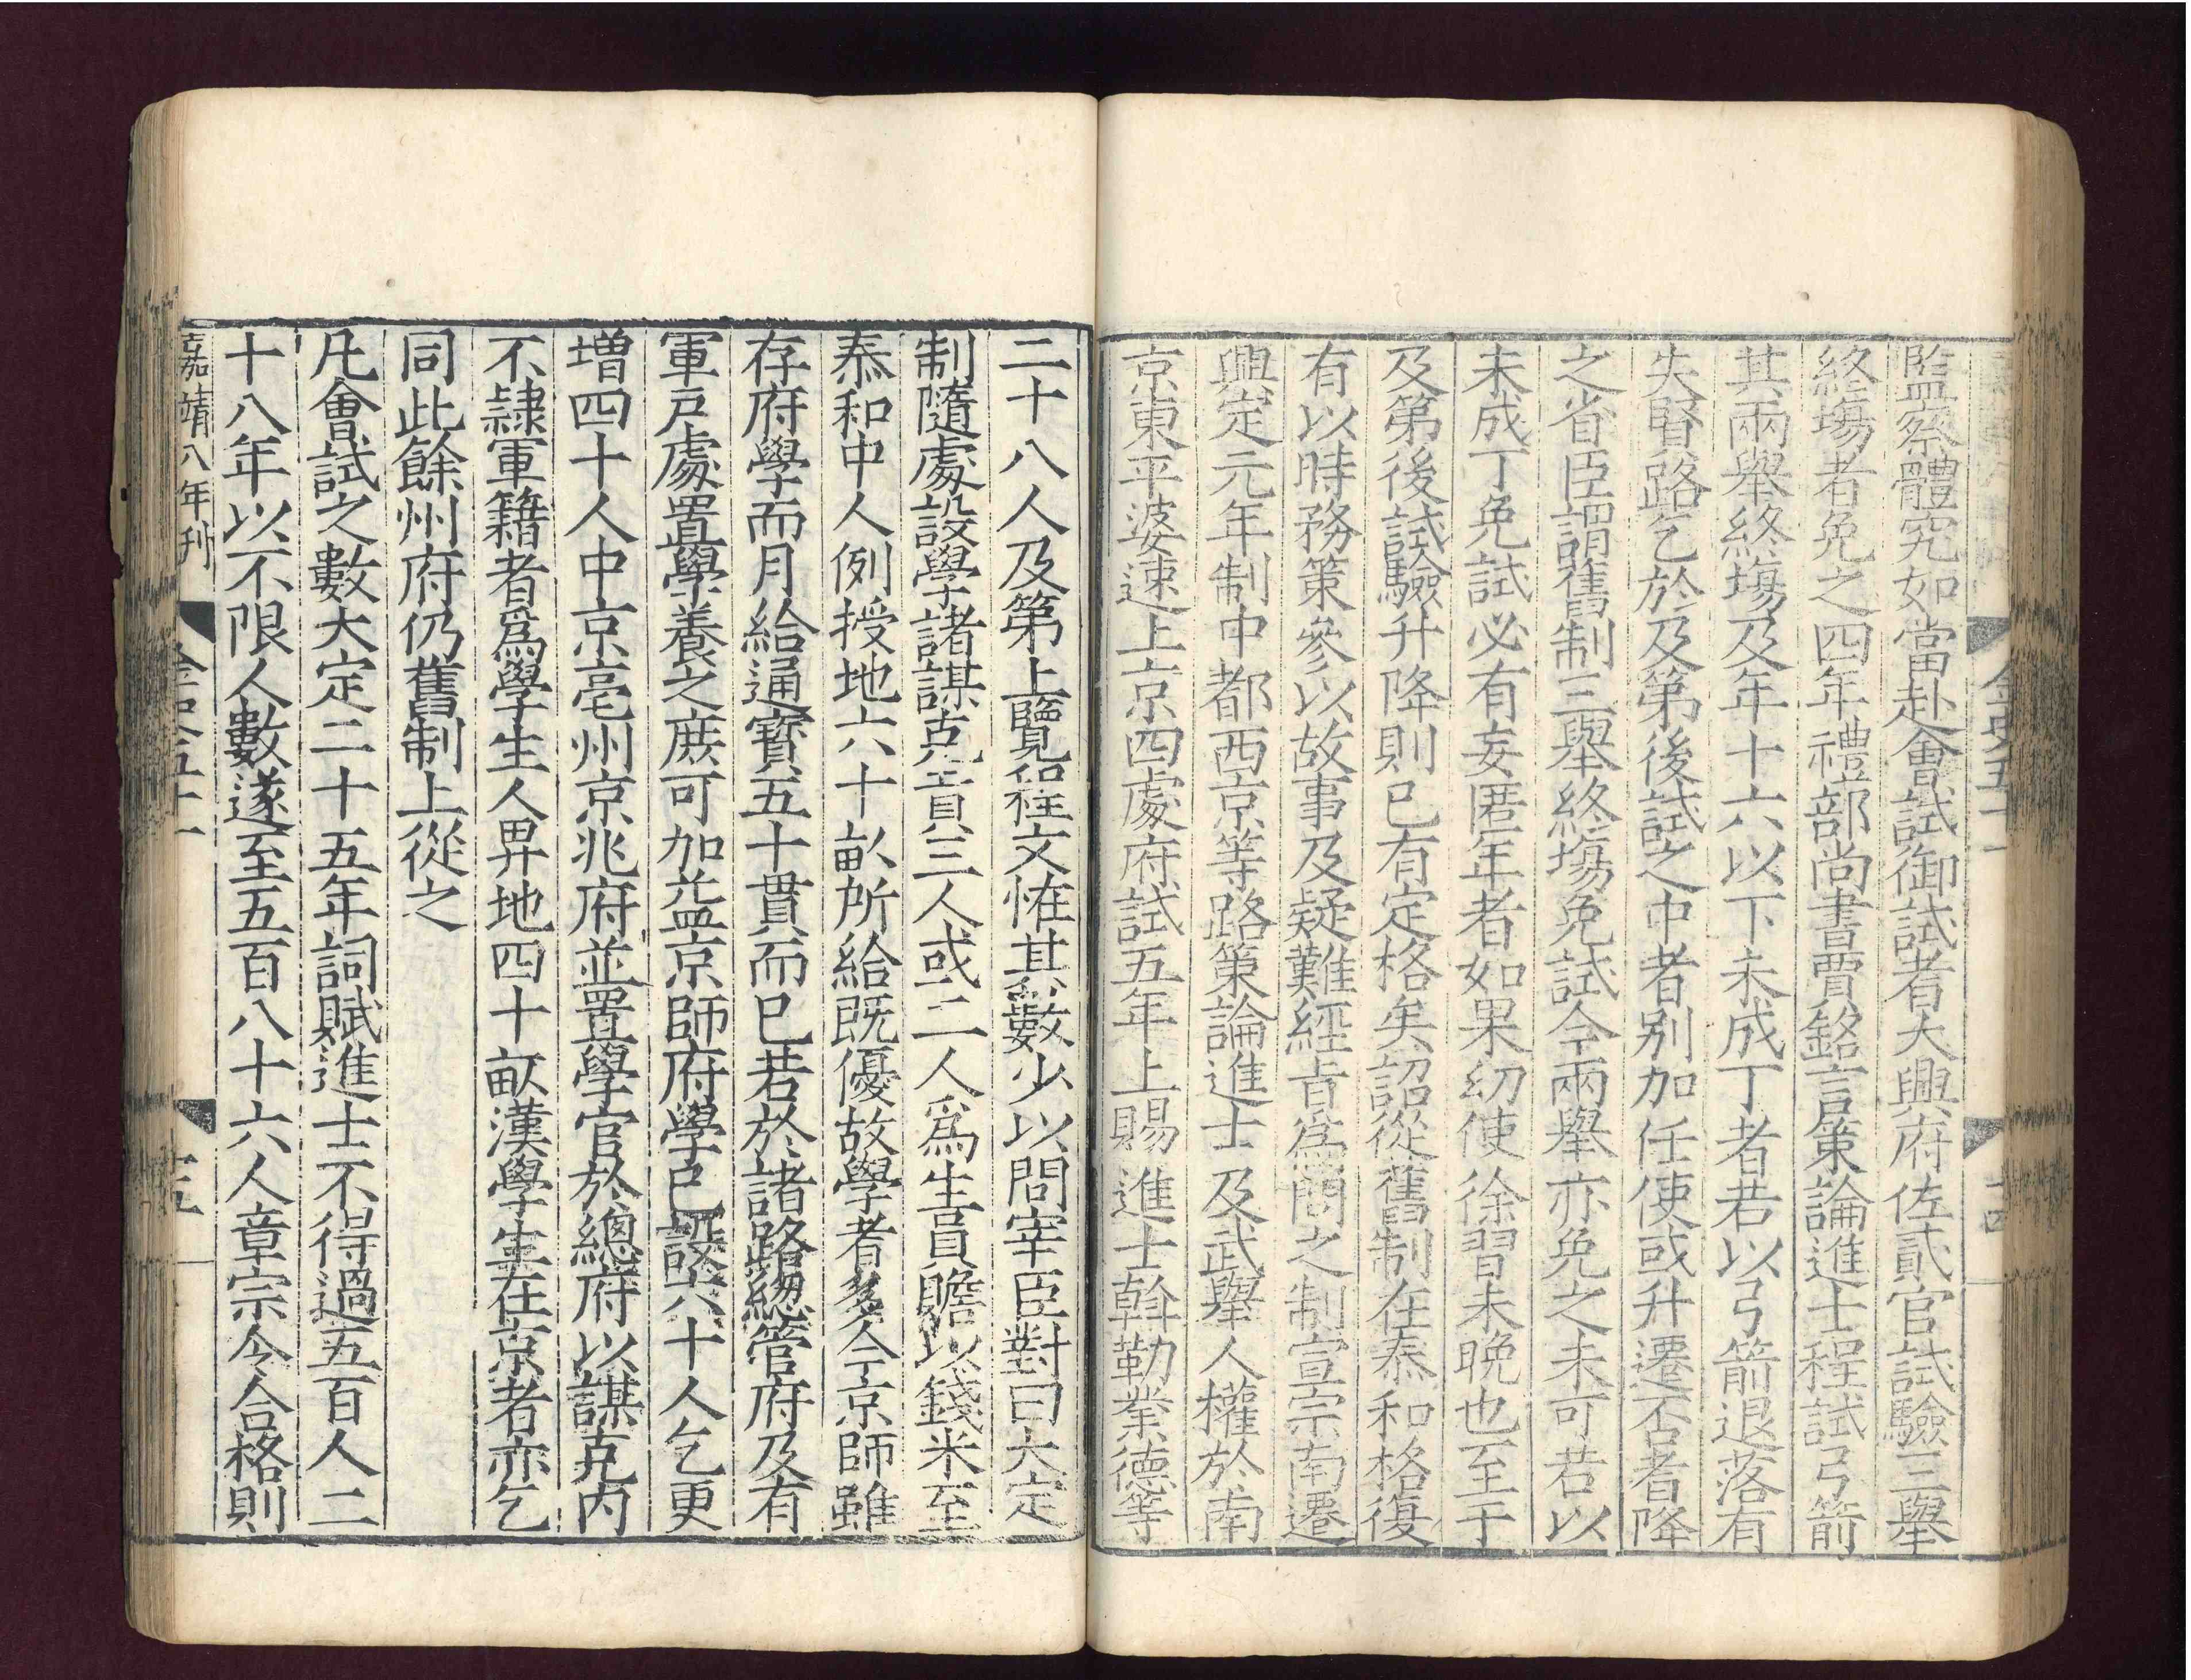 金史五十一
十四
監察體究如當赴會試御試者大興府佐貳官試驗三舉
終場者免之四年禮部尚書賈鉉言策論進士程試弓箭
其兩舉終場及年十六以下未成丁者若以弓箭退落有
失賢路乞於及第後試之中者别加任使或升遷否者降
之省臣謂舊制三舉終場免試今兩舉亦免之未可若以
未成丁免試必有妄匿年者如果幼使徐習未晚也至于
及第後試驗升降則已有定格矣詔從舊制在泰和格復
有以時務策參以故事及疑難經旨為問之制宣宗南遷
興定元年制中都西京等路策論進士及武舉人權於南
京東平婆速上京四處府試五年上賜進士斡勒業德等
二十八人及第上覽程文恠其數少以問宰臣對曰大定
制隨處設學諸謀克貢三人或二人爲生員贍以錢米至
泰和中人例授地六十畒所給既優故學者多今京師雖
存府學而月給通寳五十貫而已若於諸路總管府及有
軍戸處置學養之庶可加益京師府學已設六十人乞更
增四十人中京亳州京兆府並置學官於總府以謀克内
不隷軍籍者爲學生人畀地四十畝漢學生在京者亦乞
同此餘州府仍舊制上從之
凡會試之數大定二十五年詞賦進士不得過五百人二
十八年以不限人數遂至五百八十六人章宗令合格則
嘉靖八年刊
金史五十一
十五